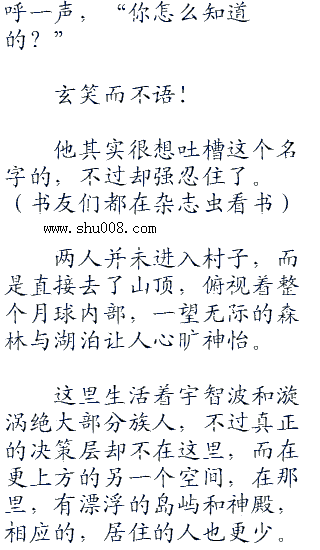 呼一声，“你怎么知道
的？”
玄笑而不语！
他其实很想吐槽这个名
字的，不过却强忍住了。
（书友们都在杂志虫看书）
www.shu008.com
两人并未进入村子，而
是直接去了山顶，俯视着整
个月球内部，一望无际的森
林与湖泊让人心旷神怡。
这里生活着宇智波和漩
涡绝大部分族人，不过真正
的决策层却不在这里，而在
更上方的另一个空间，在那
里，有漂浮的岛屿和神殿，
相应的，居住的人也更少。